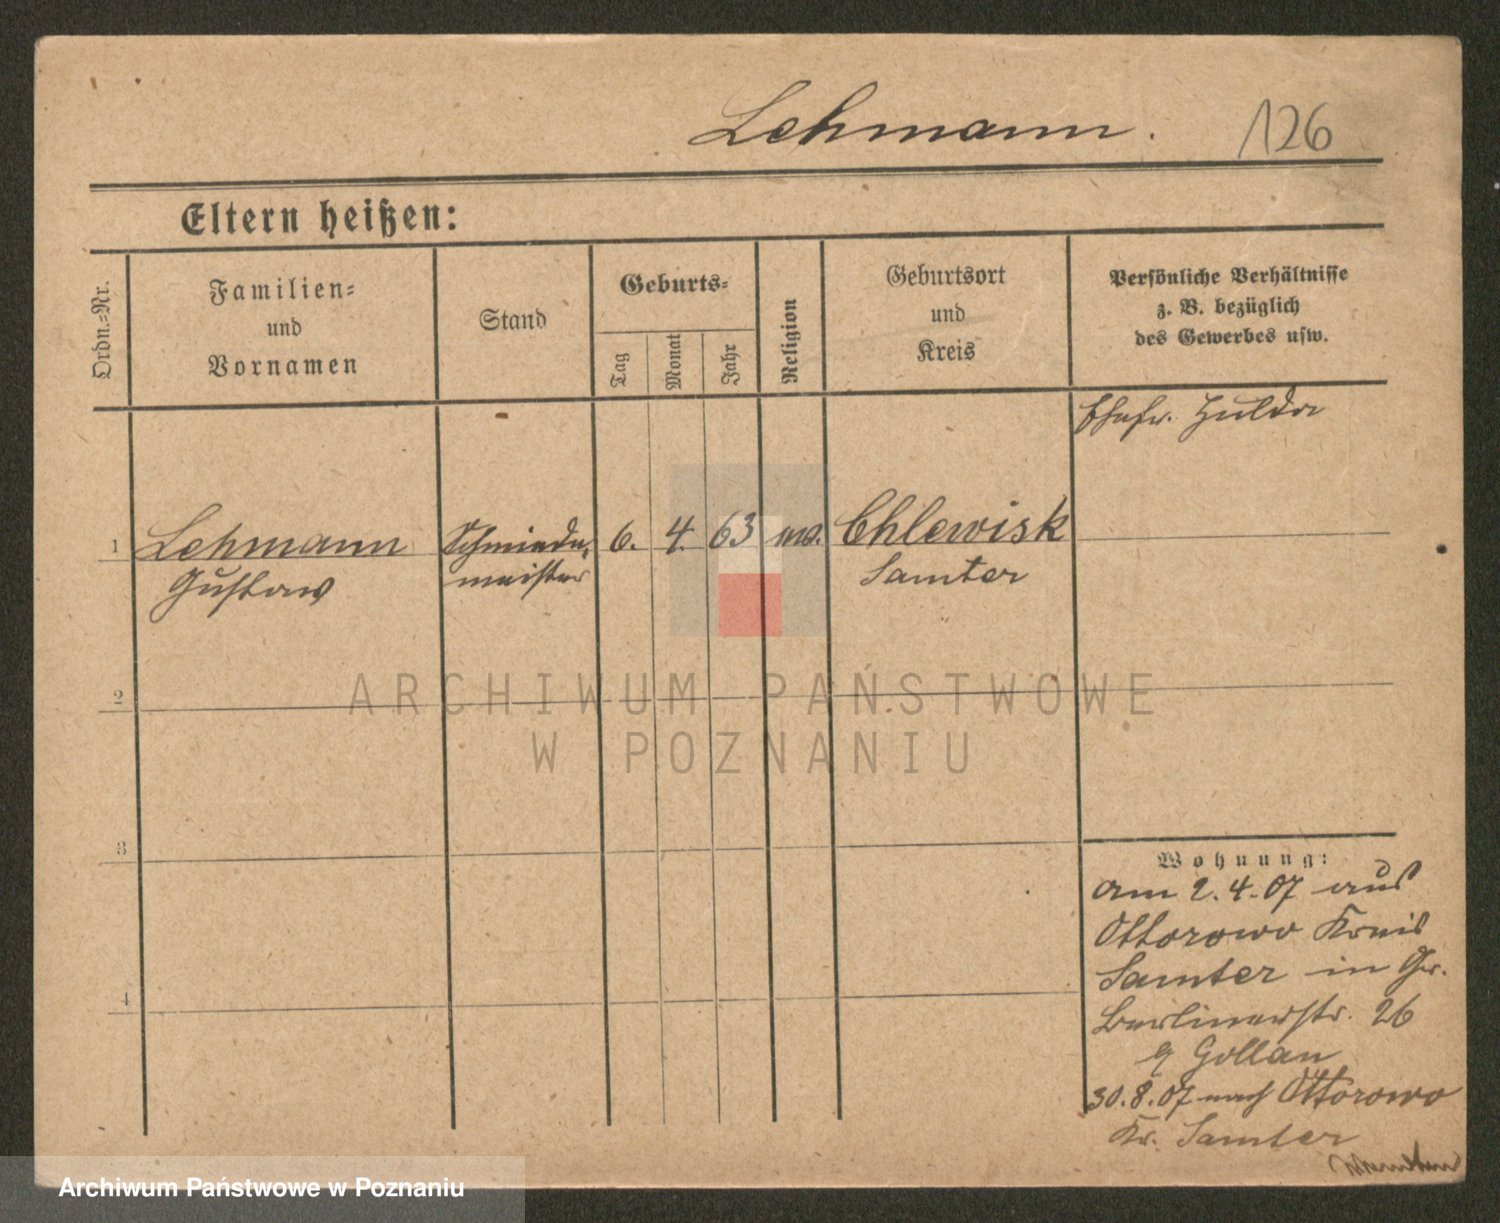 Lehmann. 126
Eltern heißen:
Ordn.-Nr.
Familien-
und
Vornamen
Stand
Geburts-
Tag
Monat
Jahr
Religion
Geburtsort
und
Kreis
Persönliche Verhältnisse
z. B. bezüglich
des Gewerbes usw.
Ehefr. Hulda
1 Lehmann Schmiede- 6. 4. 63 Chlewisk
Gustav meister Samter
2
3
4
Wohnung:
am 2.4.07 aus
Ottorowo Kreis
Samter in Gr.
Berlinerstr. 26
Gollan
30.8.07 nach Ottorowo
Kr. Samter
ARCHIWUM PAŃSTWOWE
W POZNANIU
Archiwum Państwowe w Poznaniu